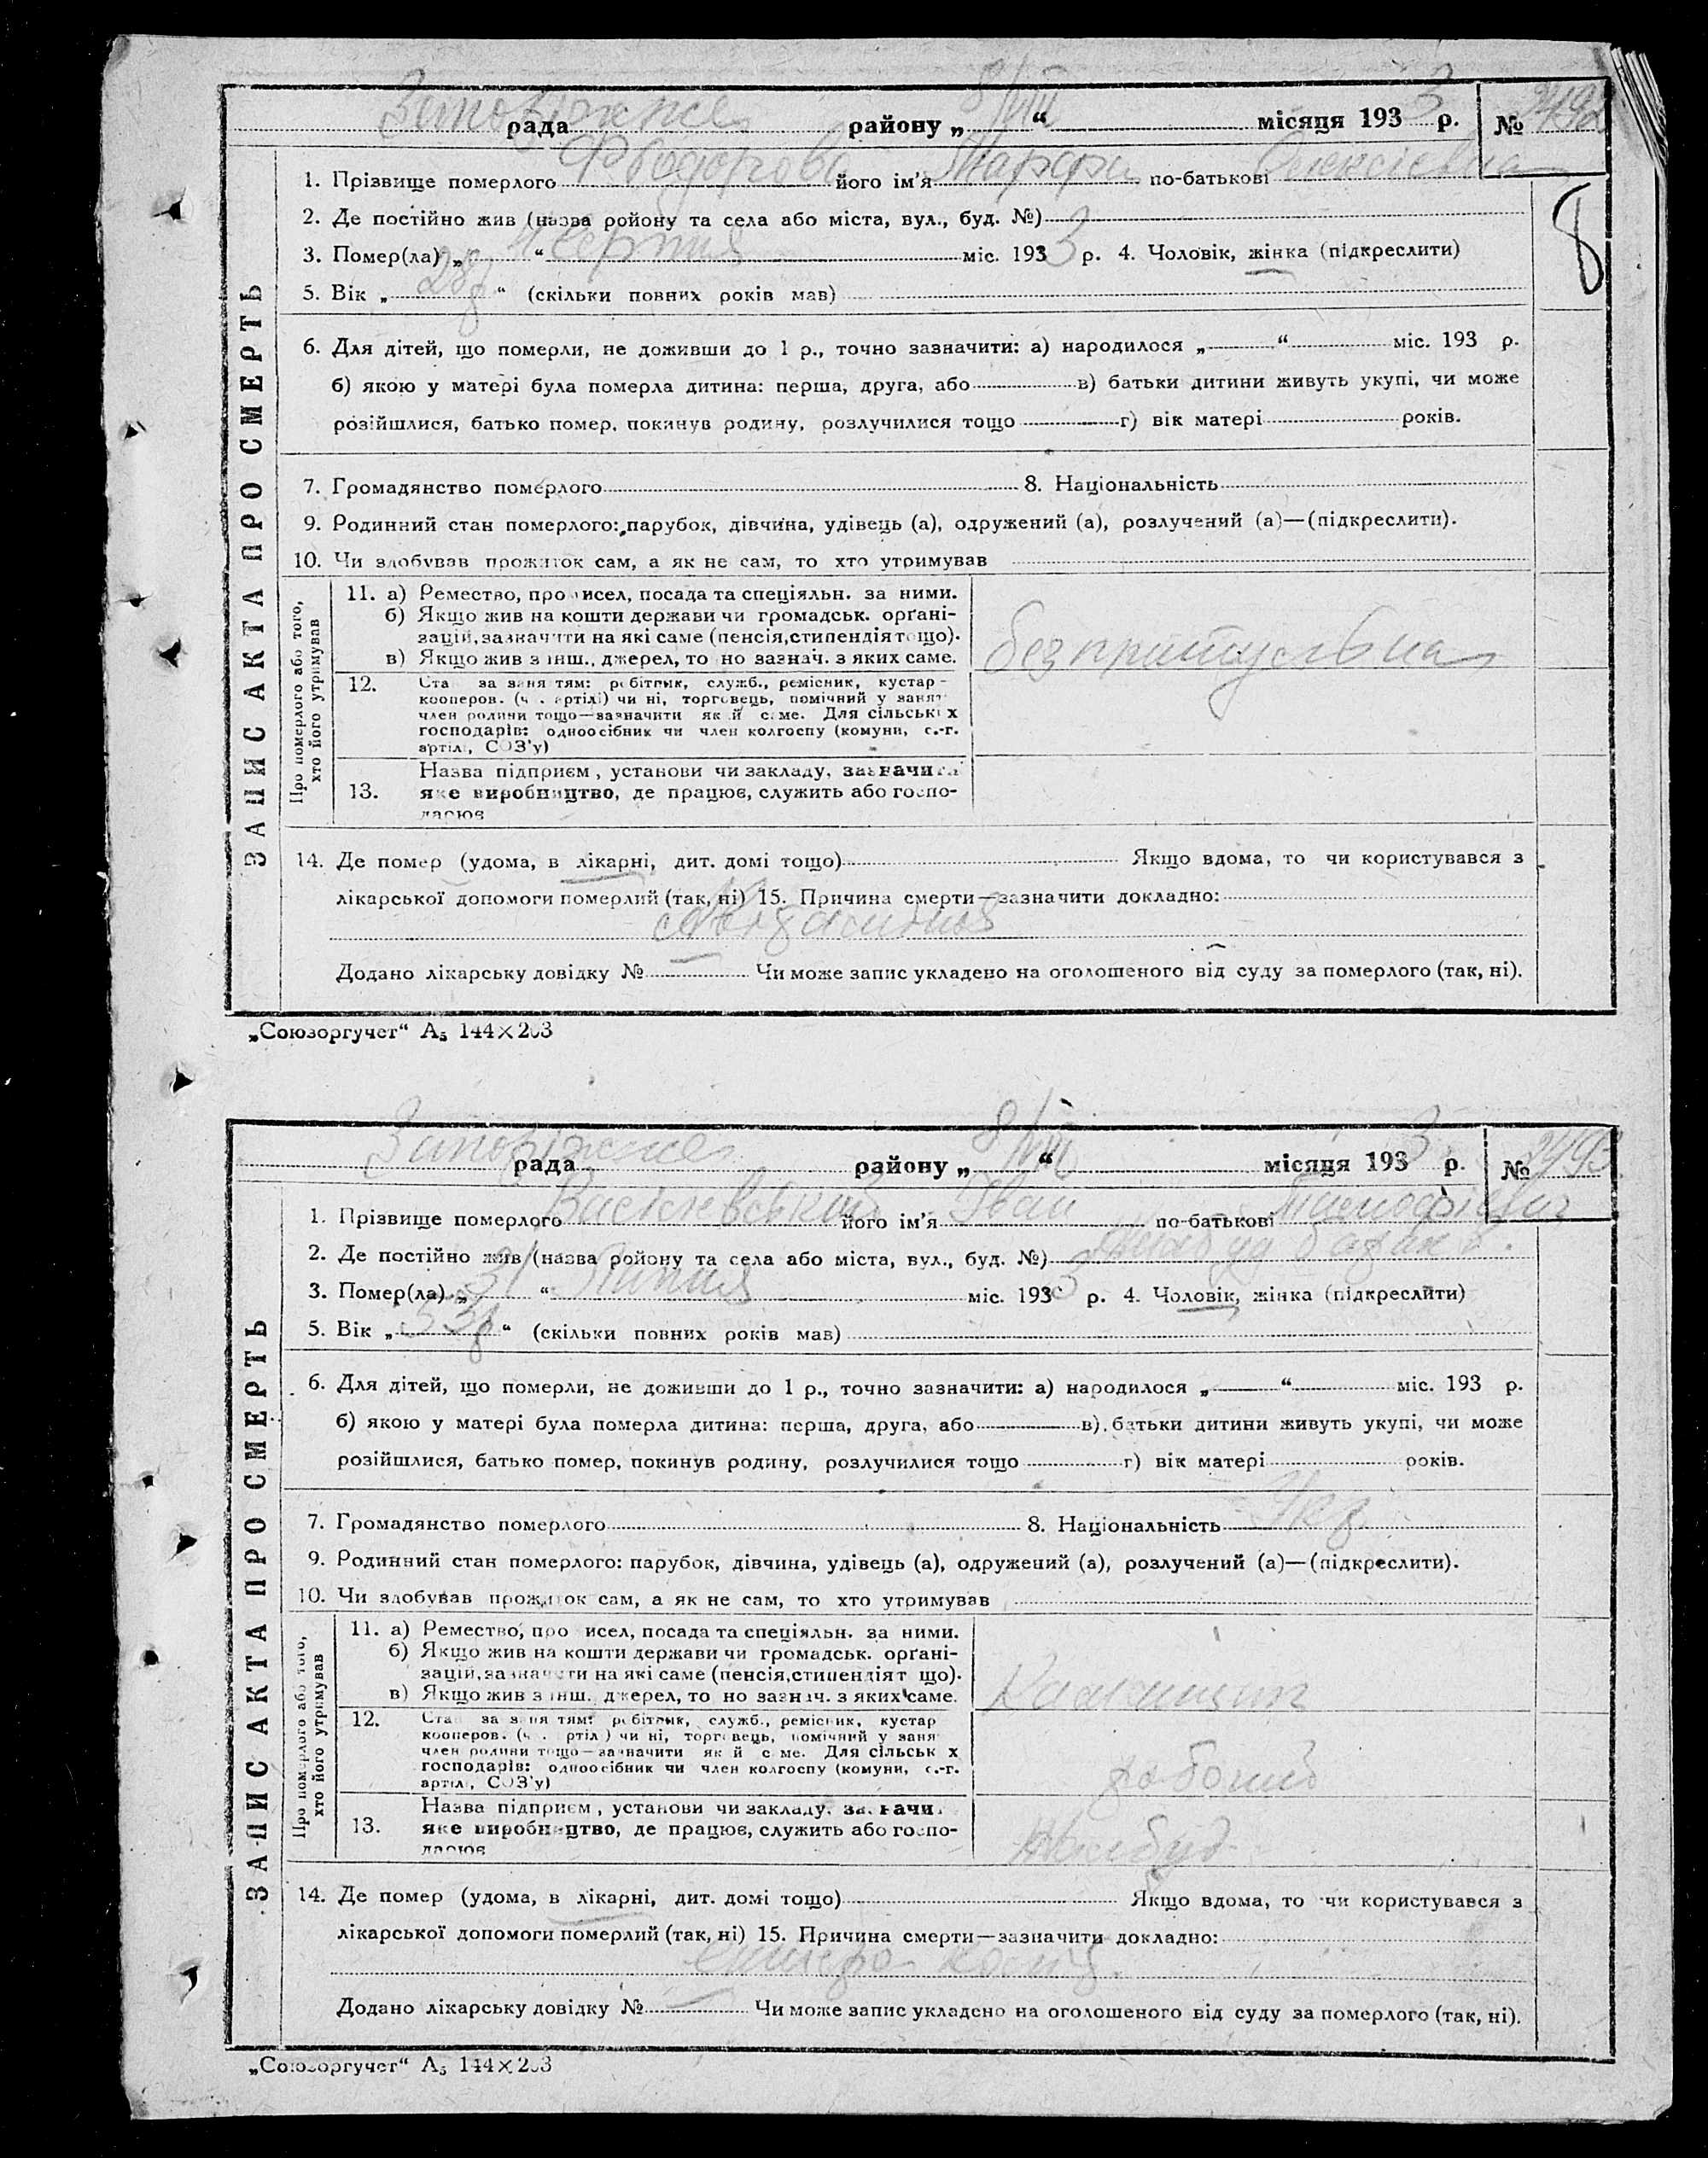 Запоріжже 8/VIII 3 2492
рада району „ “ місяця 193 р. №
ЗАПИС АКТА ПРО СМЕРТЬ
1. Прізвище померлого Федорова його ім'я Марфа по-батькові Олексієвна
2. Де постійно жив (назва ройону та села або міста, вул., буд. №)
3. Помер(ла) „ “ серпня міс. 193 3 р. 4. Чоловік, жінка (підкреслити)
5. Вік „ 28 р “ (скільки повних років мав)
8
6. Для дітей, що померли, не доживши до 1 р., точно зазначити: а) народилося „ “ міс. 193 р.
б) якою у матері була померла дитина: перша, друга, або в) батьки дитини живуть укупі, чи може
розійшлися, батько помер, покинув родину, розлучилися тощо г) вік матері років.
7. Громадянство померлого 8. Національність
9. Родинний стан померлого: парубок, дівчина, удівець (а), одружений (а), розлучений (а)—(підкреслити).
10. Чи здобував прожиток сам, а як не сам, то хто утримував
Про померлого або того, хто його утримував
11. а) Ремество, про исел, посада та спеціяльн. за ними.
б) Якщо жив на кошти держави чи громадськ. орґані-
зацій, зазначити на які саме (пенсія, стипендія тощо).
в) Якщо жив з інш. джерел, то но зазнач. з яких саме.
безпритульна
12. Ста за заня тям: робітник, служб., ремісник, кустар-
кооперов. (ч . артілі) чи ні, торговець, помічний у занят
член родини тощо—зазначити як й саме. Для сільськ х
господарів: одноосібник чи член колгоспу (комуни, с.-г.
артілі, СОЗ'у)
13. Назва підприєм , установи чи закладу, зазначити
яке виробництво, де працює, служить або госпо-
дарює
14. Де помер (удома, в лікарні, дит. домі тощо) Якщо вдома, то чи користувався з
лікарської допомоги померлий (так, ні) 15. Причина смерти—зазначити докладно:
Додано лікарську довідку № Чи може запис укладено на оголошеного від суду за померлого (так, ні).
„Союзоргучет“ А5 144×203
Запоріжже 8/VIII 3 2493
рада району „ “ місяця 193 р. №
ЗАПИС АКТА ПРО СМЕРТЬ
1. Прізвище померлого Васілевський його ім'я Іван по-батькові Тимофієвич
2. Де постійно жив (назва ройону та села або міста, вул., буд. №) барак
3. Помер(ла) „ 31 “ Липня міс. 193 3 р. 4. Чоловік, жінка (підкреслити)
5. Вік „ 53 р “ (скільки повних років мав)
6. Для дітей, що померли, не доживши до 1 р., точно зазначити: а) народилося „ “ міс. 193 р.
б) якою у матері була померла дитина: перша, друга, або в) батьки дитини живуть укупі, чи може
розійшлися, батько помер, покинув родину, розлучилися тощо г) вік матері років.
7. Громадянство померлого 8. Національність Укр
9. Родинний стан померлого: парубок, дівчина, удівець (а), одружений (а), розлучений (а)—(підкреслити).
10. Чи здобував прожиток сам, а як не сам, то хто утримував
Про померлого або того, хто його утримував
11. а) Ремество, про исел, посада та спеціяльн. за ними.
б) Якщо жив на кошти держави чи громадськ. орґані-
зацій, зазначити на які саме (пенсія, стипендія т що).
в) Якщо жив з інш. джерел, то но зазнач. з яких саме.
12. Ста за заня тям: робітник, служб., ремісник, кустар
кооперов. (ч . ртіл ) чи ні, торговець, помічний у заня
член родини тощо—зазначити як й саме. Для сільськ х
господарів: одноосібник чи член колгоспу (комуни, с.-г.
артілі, СОЗ'у)
робочий
13. Назва підприєм , установи чи закладу, зазначи
яке виробництво, де працює, служить або госпо-
дарює
14. Де помер (удома, в лікарні, дит. домі тощо) Якщо вдома, то чи користувався з
лікарської допомоги померлий (так, ні) 15. Причина смерти—зазначити докладно:
Додано лікарську довідку № Чи може запис укладено на оголошеного від суду за померлого (так, ні).
„Союзоргучет“ А5 144×203